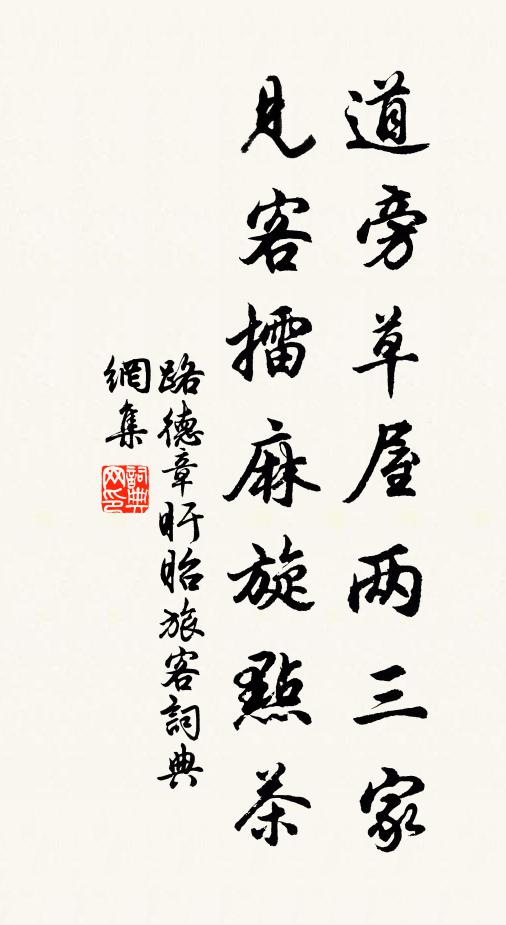 道旁草屋两三家
見客擂麻旋點茶
路德章盱眙旅客詞典
網集
詞典
网印